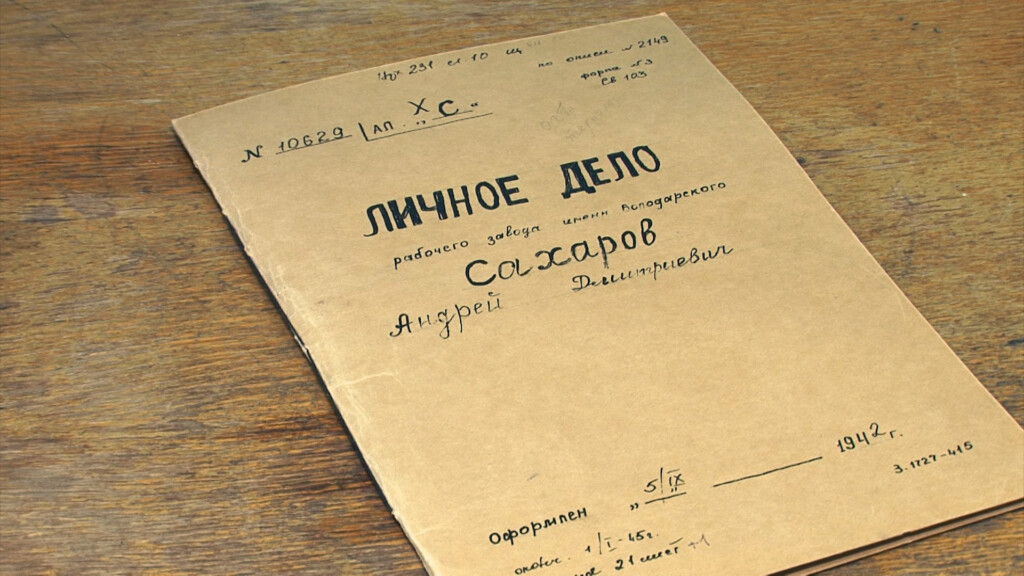 231 и 10
по описи № 2149
форма №3
св 103
N 10629 АП. Х „С"
ЛИЧНОЕ ДЕЛО
рабочего завода имени Володарского
Сахаров
Андрей Дмитриевич
Оформлен „5/IX" 1942 г.
З.1727-415
1/I-45г.
21 лист +1